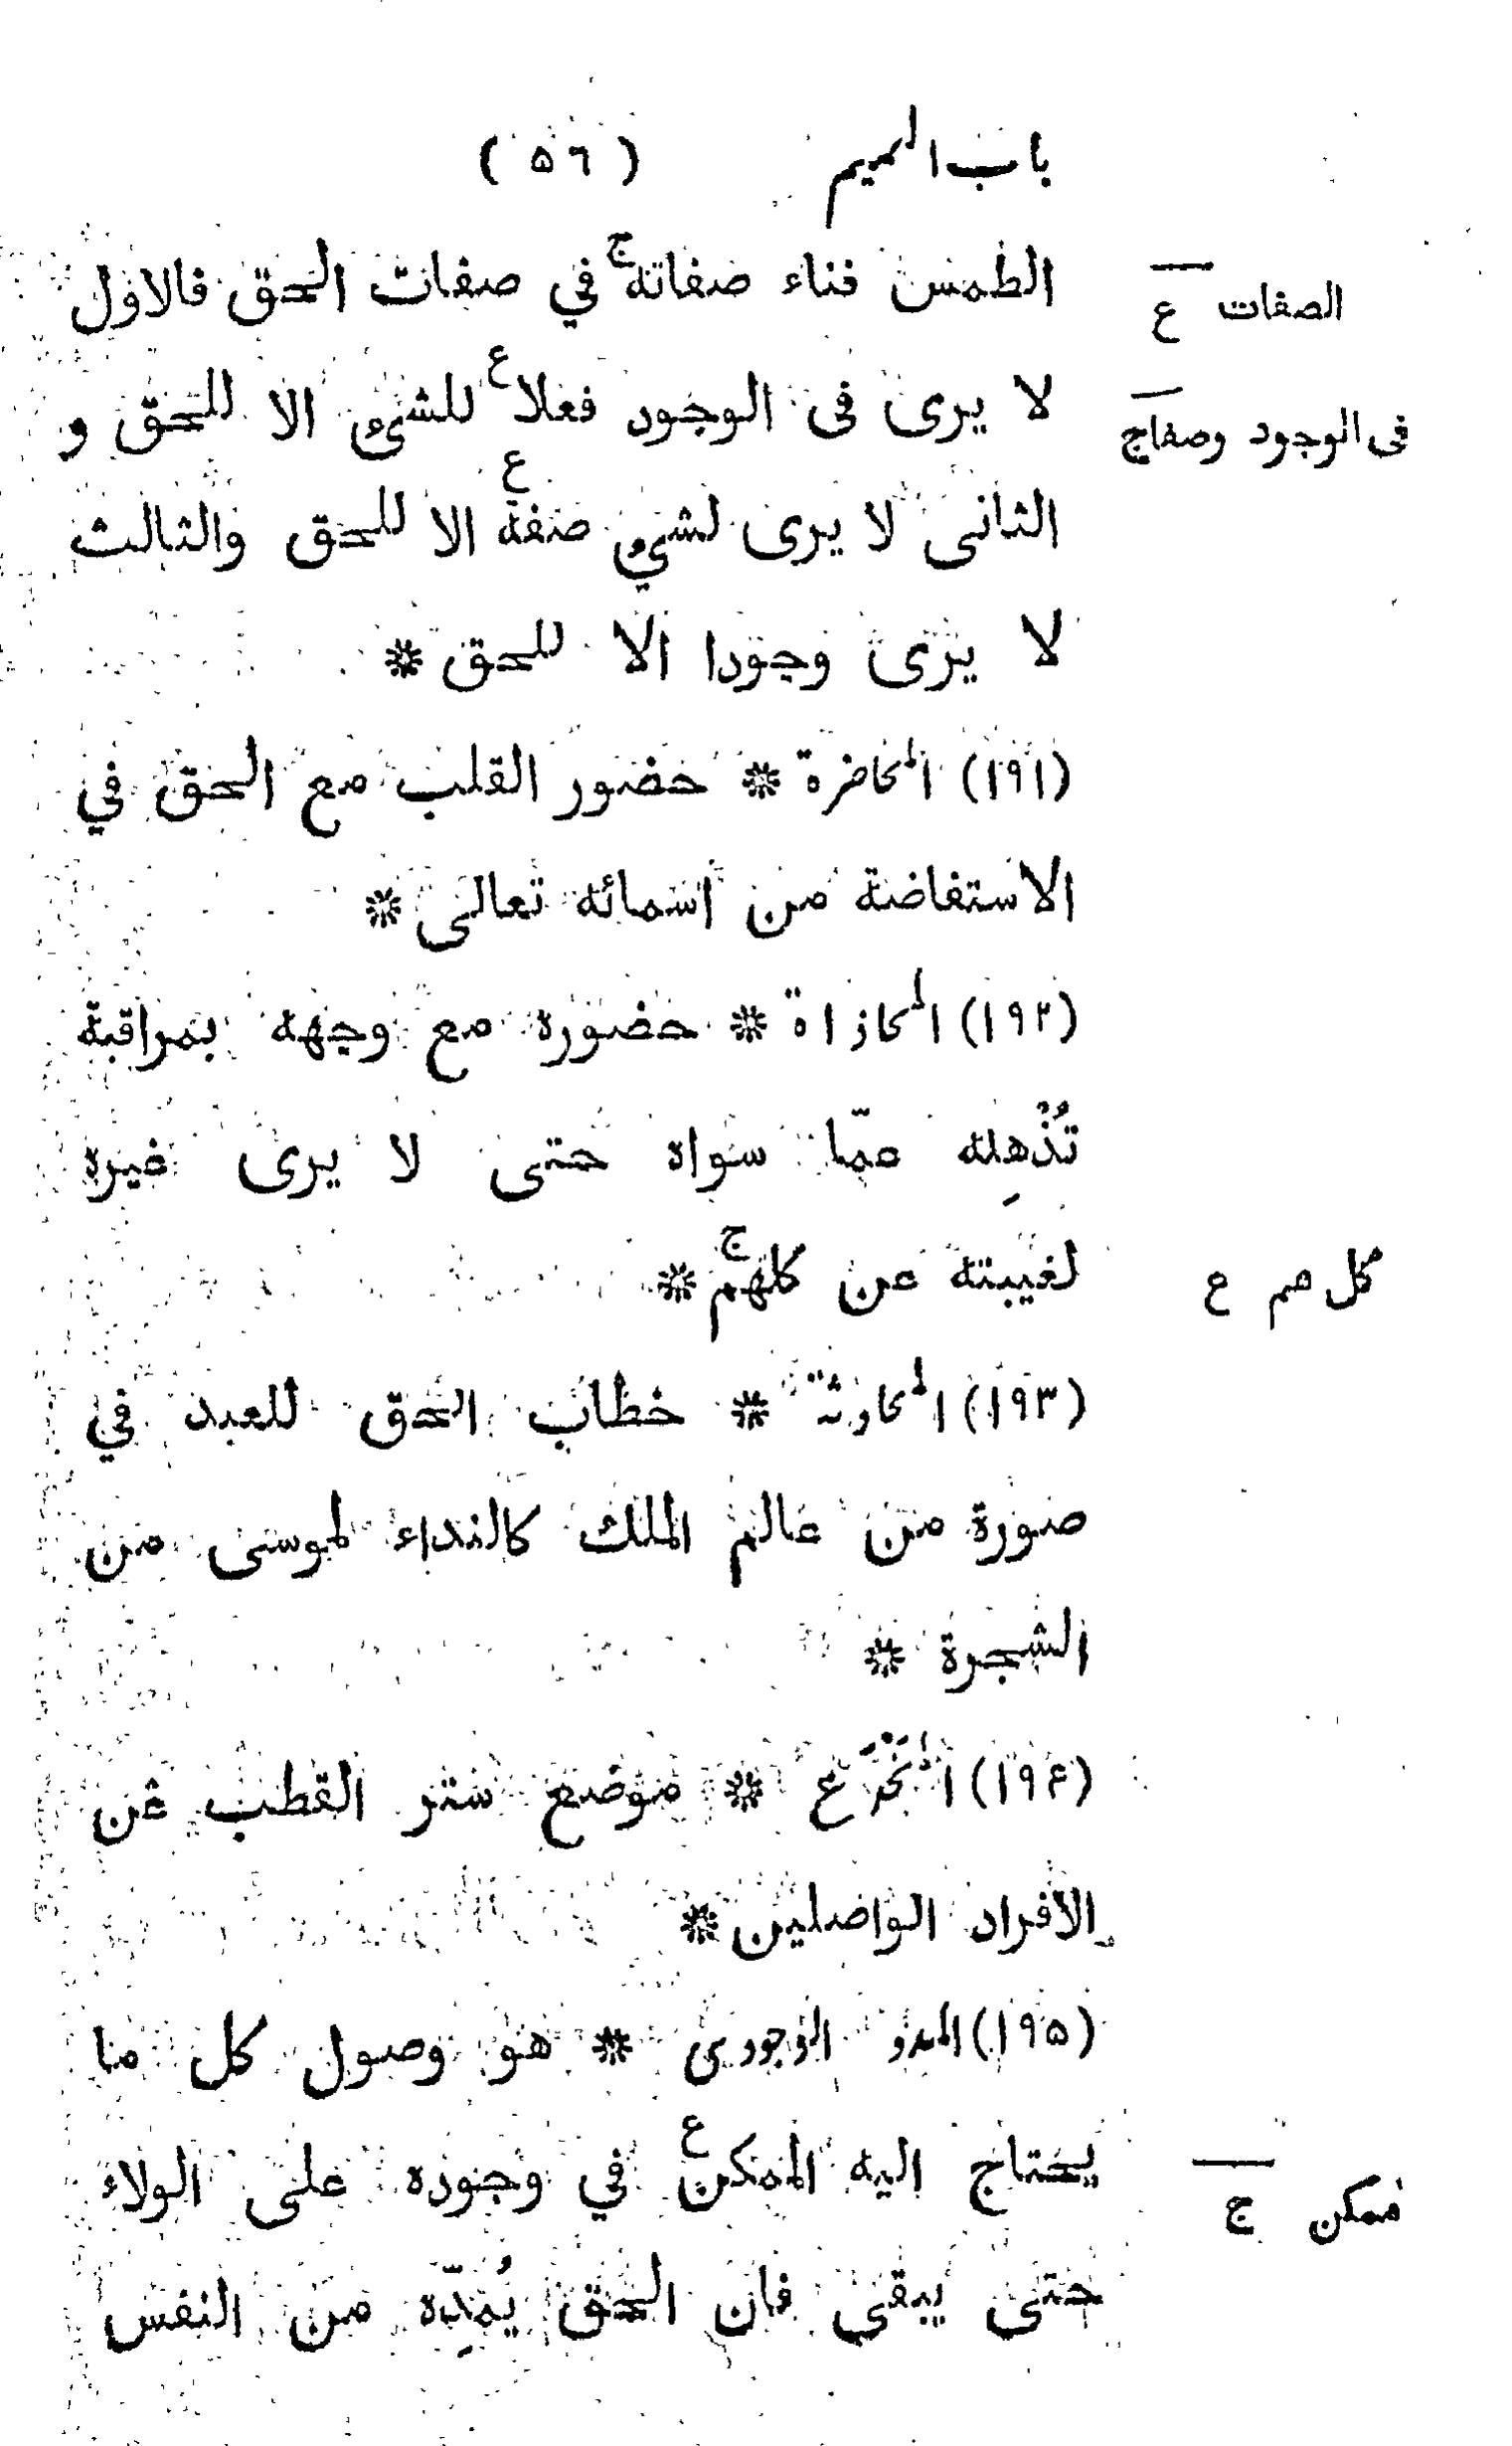 باب الميم (٥٦)
الطمس فناء صفاته ج في صفات الحق فالاول
الصفات ع
لا يرى فى الوجود فعلا ع للشىء الا للحق و
فى الوجود وصفا ج
الثانى لا يرى لشىء صفة ع الا للحق والثالث
لا يرى وجودا الا للحق *
(١٩١) المحاضرة * حضور القلب مع الحق في
الاستفاضة من اسمائه تعالى *
(١٩٢) المحاذاة * حضوره مع وجهه بمراقبة
تُذْهِله عمّا سواه حتى لا يرى غيره
لغيبته عن كلهم ج *
كل هم ع
(١٩٣) المحادثة * خطاب الحق للعبد في
صورة من عالم الملك كالنداء لموسى من
الشجرة *
(١٩٤) المَخْدَع * موضع ستر القطب عن
الافراد الواصلين *
(١٩٥) المدد الوجودى * هو وصول كل ما
يحتاج اليه الممكن ع في وجوده على الولاء
ممكن ج
حتى يبقى فان الحق يُمِدّه من النفس